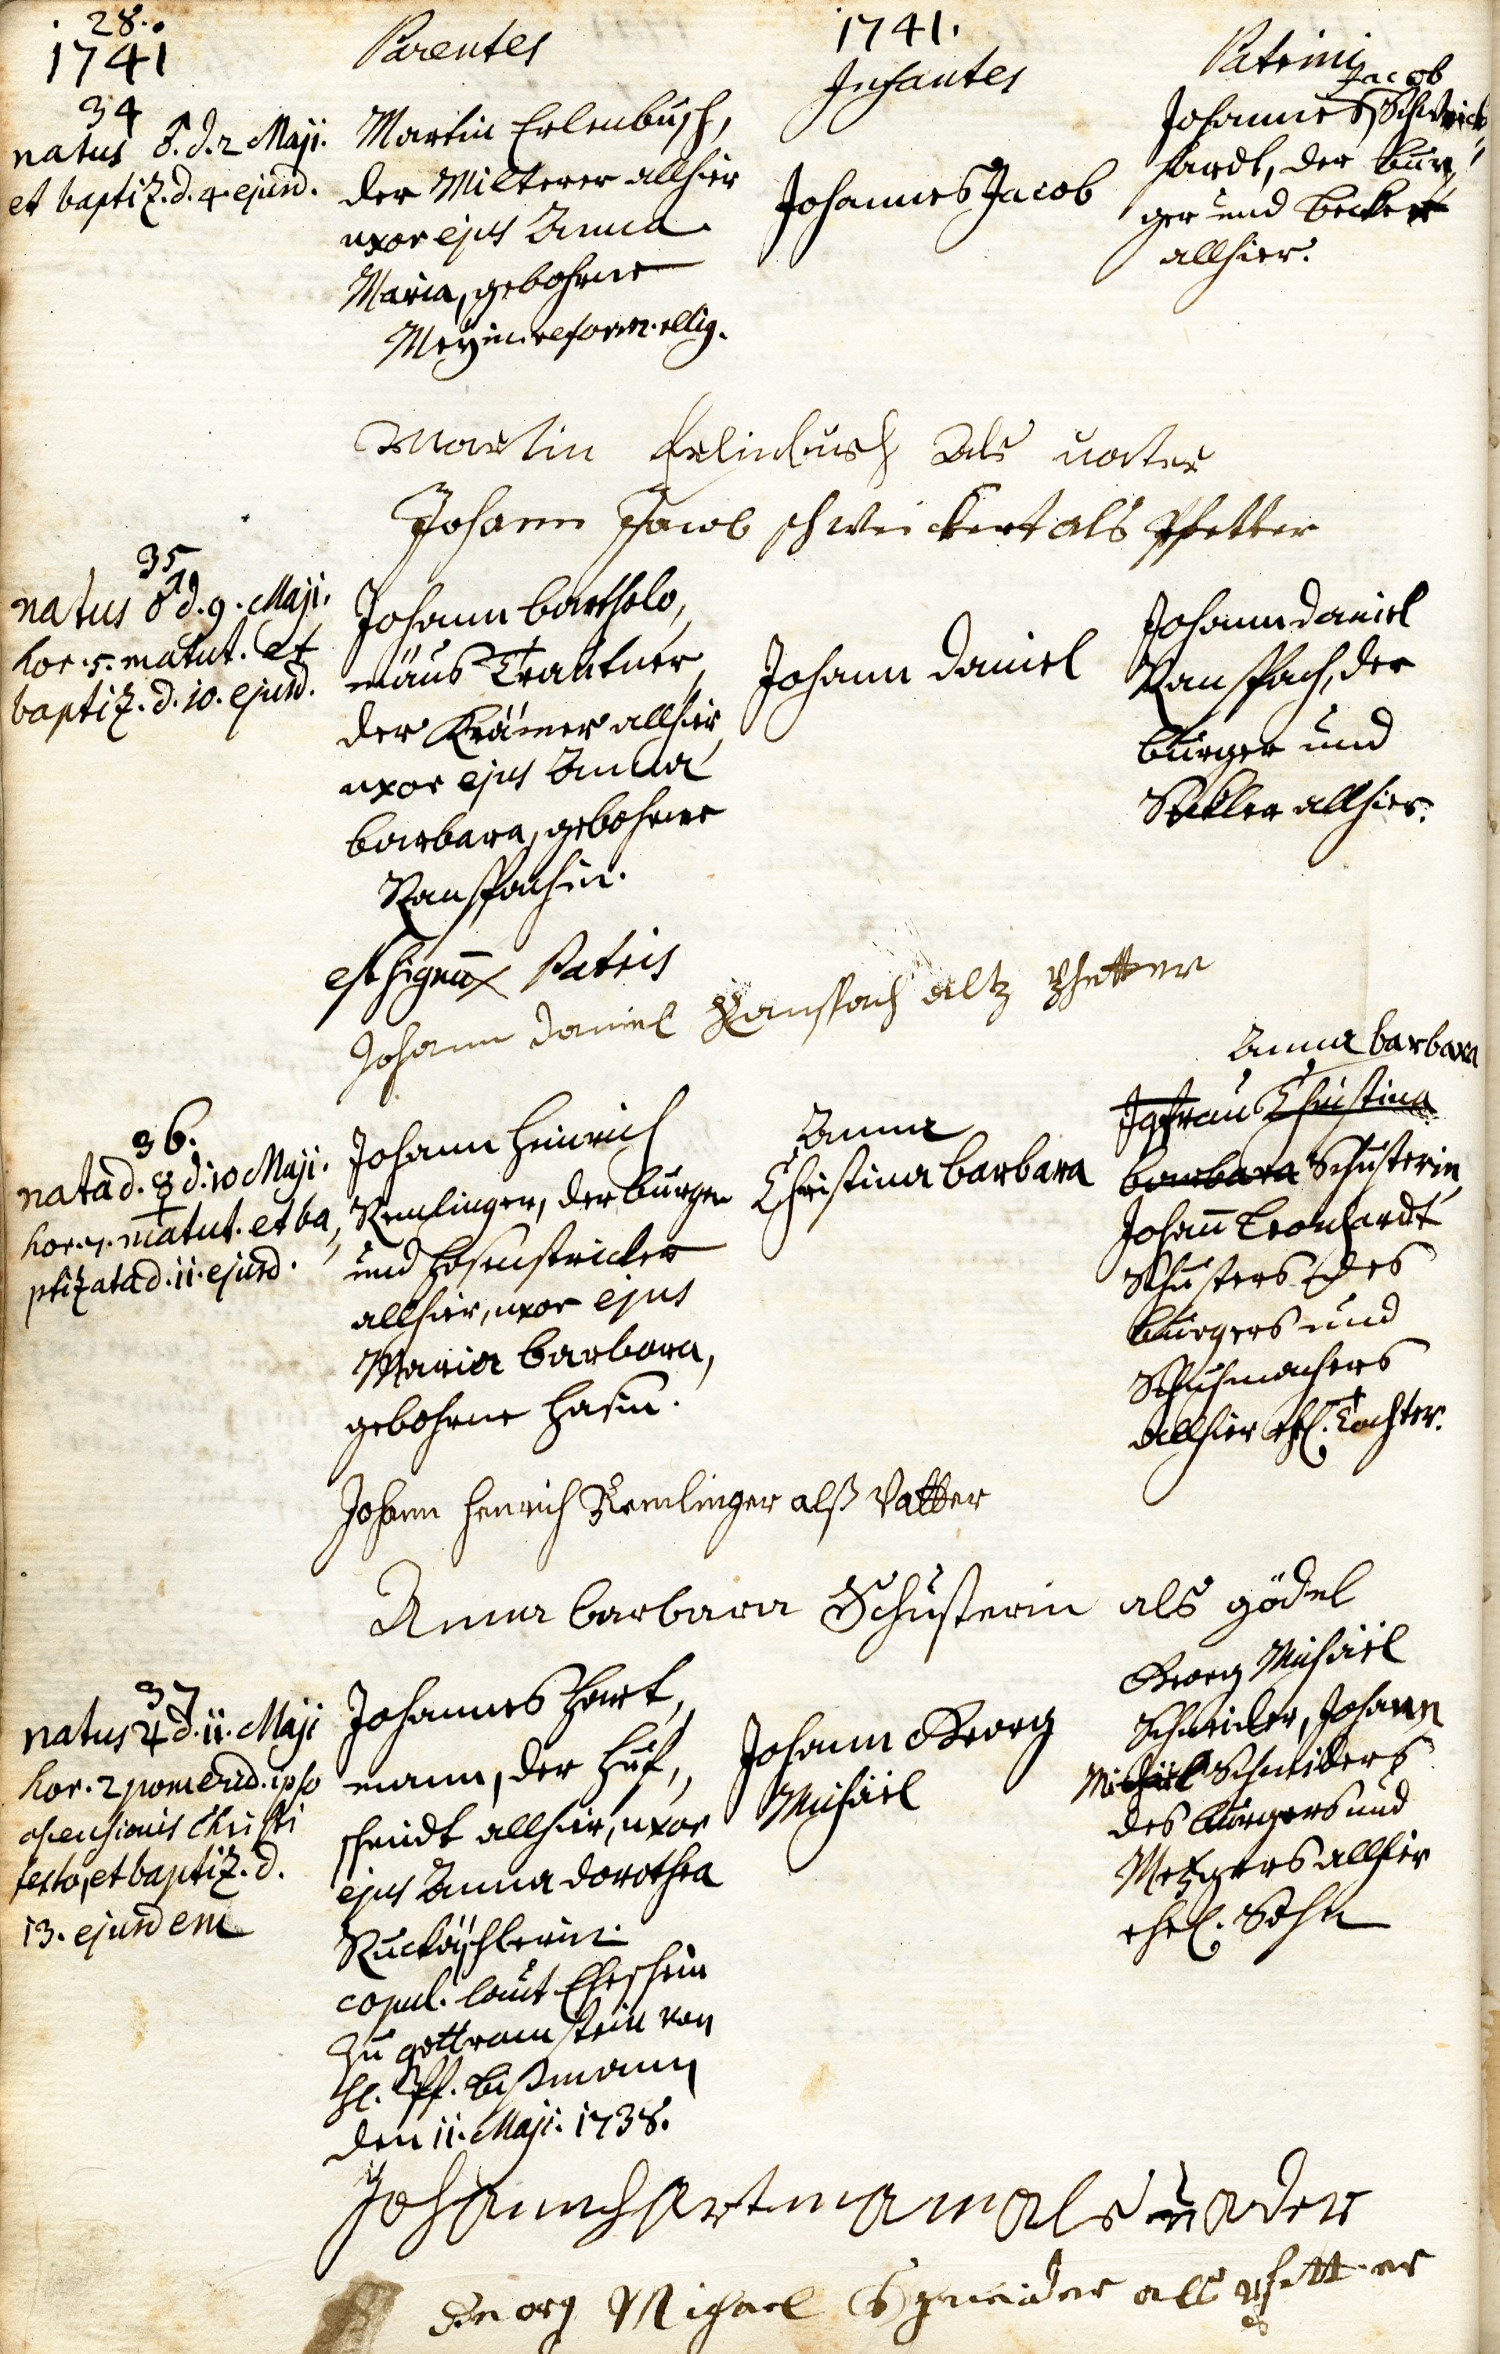 28.
1741
Parentes
1741.
Infantes
Patrini
34
natus ♂. d. 2 Maji.
et baptiz. d. 4. ejusd.
Martin Erlenbusch,
der Milterer allhier
uxor ejus Anna
Maria, gebohrne
Meyin reform. relig.
Johannes Jacob
Jacob
Johannes Schweick,
hardt, der bur,
ger und Becker
allhier.
Martin Erlinbusch Als vatter
Johann Jacob schweickert als Pfetter
35
natus ♂ d. 9. Maji.
hor. 5. matut. et
baptiz. d. 10. ejusd.
Johann Bartholo,
mäus Trautner,
der Krämer allhier,
uxor ejus Anna
Barbara, gebohrne
Ranspachin.
Johann Daniel
Johann Daniel
Ranspach, der
Bürger und
Sekler allhier.
est signū X Patris
Johann Daniel Ranspach altz Pfetter
36.
nata d. ☿ d. 10 Maji.
hor. 7. matut. et ba,
ptizata d. 11. ejusd.
Johann Heinrich
Remlinger, der Burger
und Hosenstricker
allhier, uxor ejus
Maria Barbara,
gebohrne Hasin.
Anna
Christina Barbara
Anna Barbara
Jgfrau Christina
Barbara Schusterin
Johañ Leonhardt
Schusters des
Bürgers und
Schuhmachers
allhier ehl. Tochter.
Johann Henrich Remlinger alß Vatter
Anna Barbara Schusterin als gödel
37
natus ♃ d. 11. Maji
hor. 2 pomerid. ipso
ascensionis Christi
festo, et baptiz. d.
13. ejusdem
Johannes Hart,,
mann, der Huf,,
schmidt allhier, uxor
ejus Anna Dorothea
Ruckäschlerin.
copul. laut Eheschein
zu gottramstein von
H. Pf. Bißmann
den 11. Maji. 1738.
Johann Georg
Michäel
Georg Michäel
Schneider, Johann
Michäel Schneiders
des Bürgers und
Metzgers allhier
ehel. Sohn
Johannes hartmaman als vader
Georg Michael Schneider als Pfetter